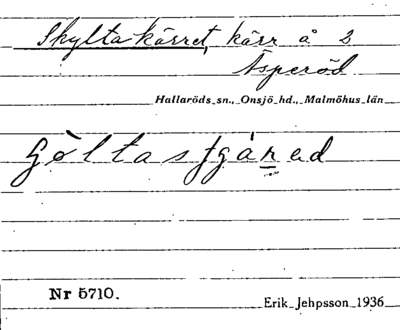 Skyltakärret, kärr å 2
Äsperöd
Hallaröds sn., Onsjö hd., Malmöhus län
Nr 5710.
Erik Jehpsson 1936